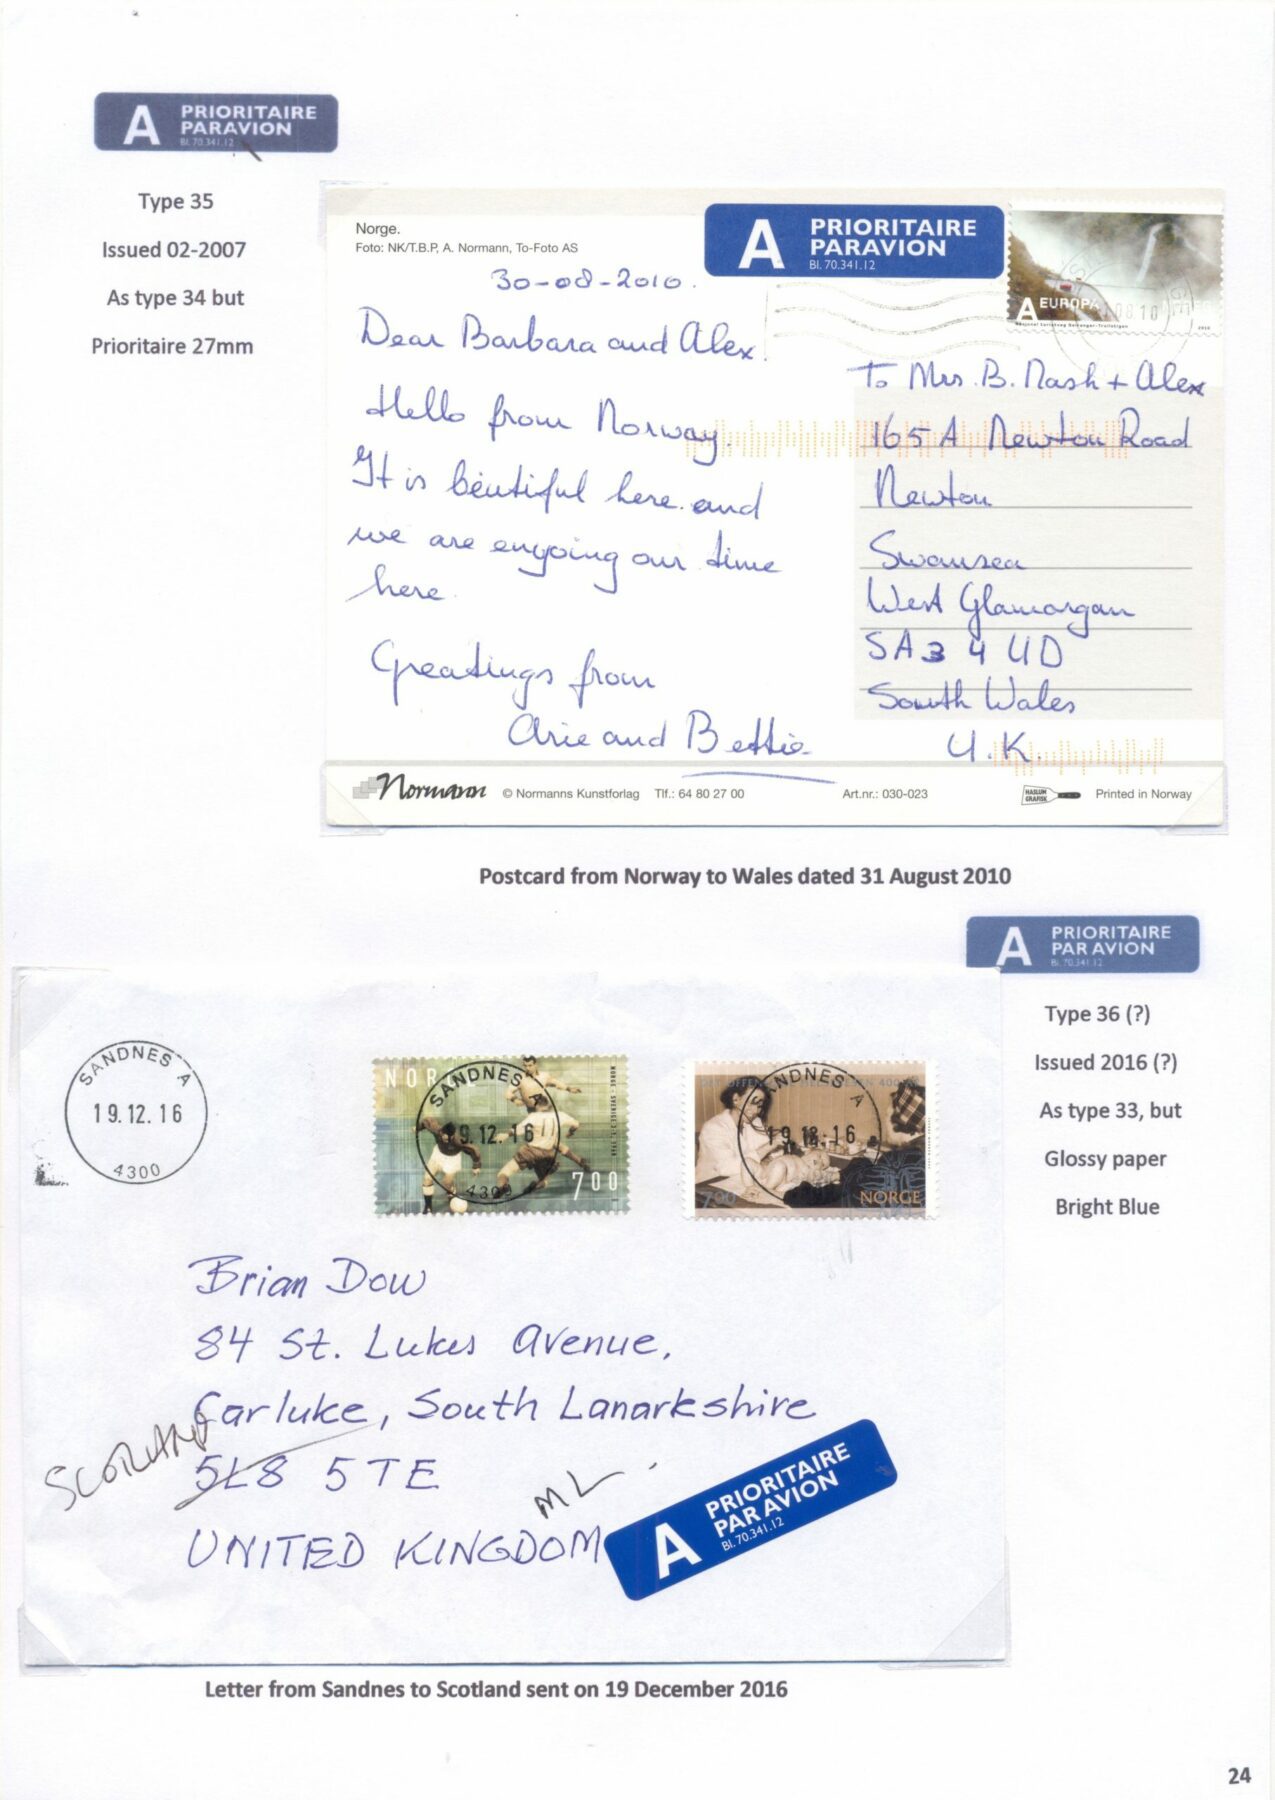 A PRIORITAIRE
PAR AVION
Bl. 70.341.12
Type 35
Issued 02-2007
As type 34 but
Prioritaire 27mm
Norge.
Foto: NK/T.B.P, A. Normann, To-Foto AS
A PRIORITAIRE
PAR AVION
Bl. 70.341.12
A EUROPA
2010
08.10
30-08-2010.
Dear Barbara and Alex
Hello from Norway.
It is beutiful here and
we are enyoing our time
here.
Greatings from
Arie and Bettie
To Mrs. B. Nash + Alex
165 A Newton Road
Newton
Swansea
West Glamorgan
SA3 4 UD
South Wales
U.K.
Normann © Normanns Kunstforlag Tlf.: 64 80 27 00 Art.nr.: 030-023 HASLUM GRAFISK Printed in Norway
Postcard from Norway to Wales dated 31 August 2010
A PRIORITAIRE
PAR AVION
Bl. 70.341.12
Type 36 (?)
Issued 2016 (?)
As type 33, but
Glossy paper
Bright Blue
SANDNES A
19.12.16
4300
NORGE
NORGE - SVERIGE
7 00
SANDNES A
19.12.16
4300
7 00
NORGE
SANDNES A
19.12.16
Brian Dow
84 St. Lukes Avenue,
Carluke, South Lanarkshire
SCOTLAND
5L8 5TE
ML
UNITED KINGDOM
A PRIORITAIRE
PAR AVION
Bl. 70.341.12
Letter from Sandnes to Scotland sent on 19 December 2016
24